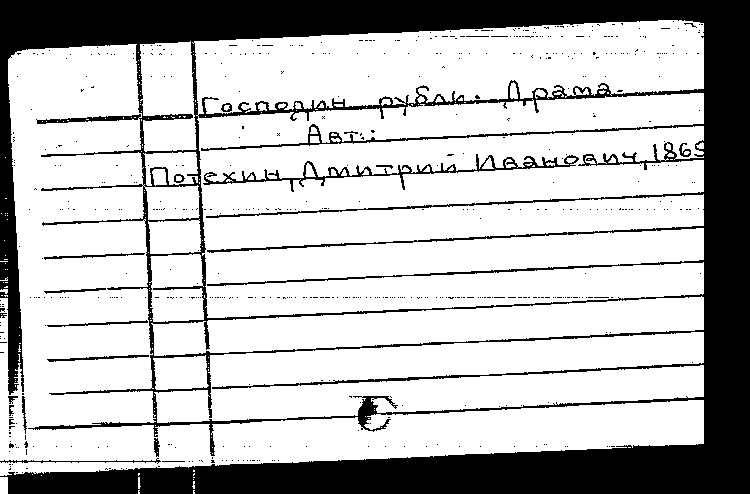 Господин рубль. Драма.
Авт.:
Потехин, Дмитрий Иванович, 1865